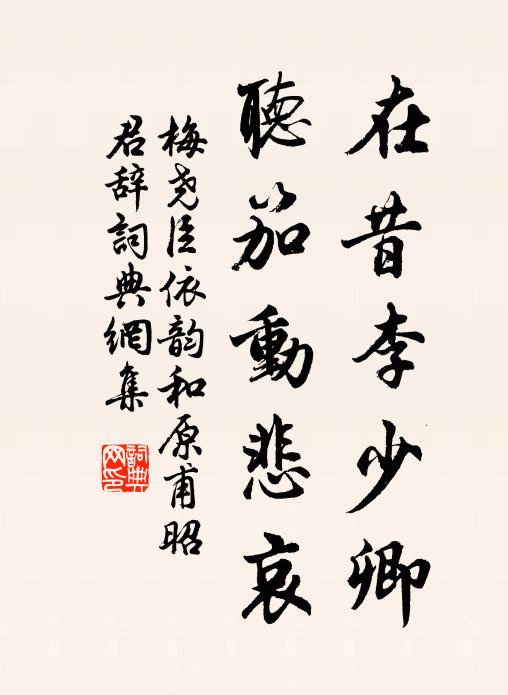 在昔李少卿
聽笳動悲哀
梅尧臣依韵和原甫昭
君辞詞典網集
詞典
网印